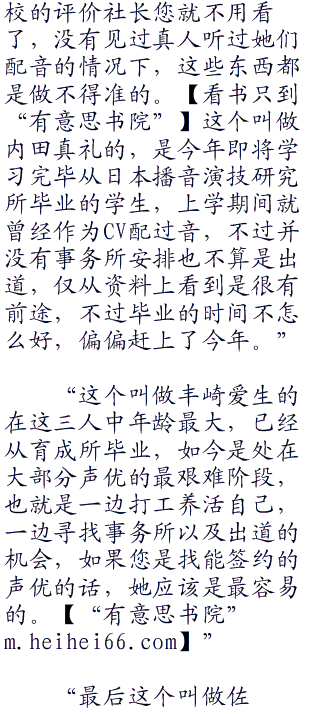 校的评价社长您就不用看
了，没有见过真人听过她们
配音的情况下，这些东西都
是做不得准的。【看书只到
“有意思书院”】这个叫做
内田真礼的，是今年即将学
习完毕从日本播音演技研究
所毕业的学生，上学期间就
曾经作为CV配过音，不过并
没有事务所安排也不算是出
道，仅从资料上看到是很有
前途，不过毕业的时间不怎
么好，偏偏赶上了今年。”
“这个叫做丰崎爱生的
在这三人中年龄最大，已经
从育成所毕业，如今是处在
大部分声优的最艰难阶段，
也就是一边打工养活自己，
一边寻找事务所以及出道的
机会，如果您是找能签约的
声优的话，她应该是最容易
的。【“有意思书院”
m.heihei66.com】”
“最后这个叫做佐